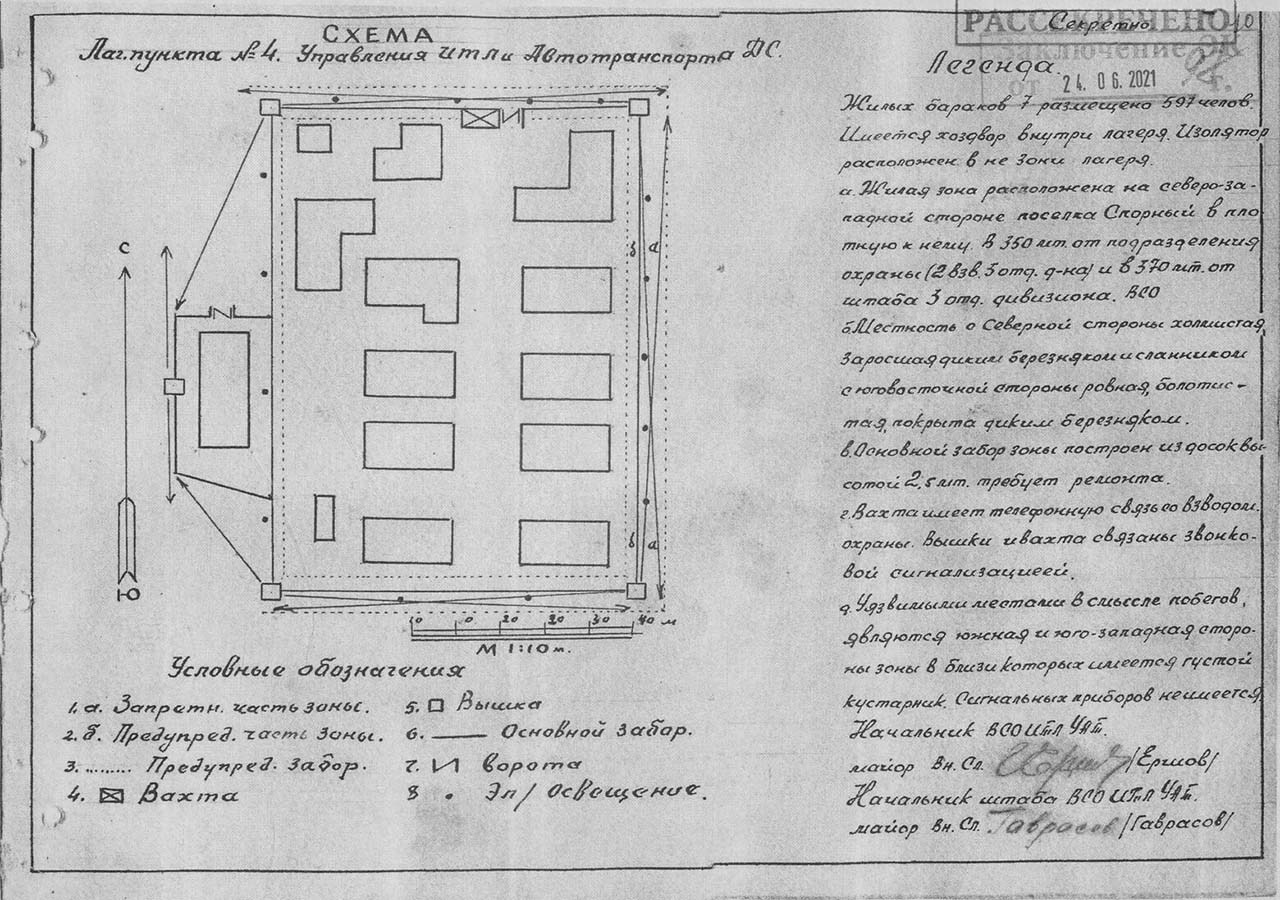 РАССЕКРЕЧЕНО
Секретно
10
Заключение ЭК
от 24.06.2021 г.
СХЕМА
Лаг.пункта №4. Управления ИТЛ и Автотранспорта ДС.
С
Ю
б а
б а
10 0 10 20 30 40 м
М 1:10 м.
Условные обозначения
1. а. Запретн. часть зоны.
2. б. Предупред. часть зоны.
3. ......... Предупред. забор.
4. Вахта
5. Вышка
6. Основной забор.
7. Ворота
8 • Эл/Освещение.
Легенда.
Жилых бараков 7 размещено 597 челов.
Имеется хоздвор внутри лагеря. Изолятор
расположен в не зоны лагеря.
а. Жилая зона расположена на северо-за-
падной стороне поселка Спорный в пло-
тную к нему. В 350 мт. от подразделения
охраны (2 взв. 3 отд. д-на) и в 370 мт. от
штаба 3 отд. дивизиона. ВСО
б. Местность с Северной стороны холмистая,
заросшая диким березняком и сланником
с юговосточной стороны ровная, болотис-
тая, покрыта диким березняком.
в. Основной забор зоны построен из досок вы-
сотой 2,5 мт. требует ремонта.
г. Вахта имеет телефонную связь со взводом.
охраны. Вышки и вахта связаны звонко-
вой сигнализациеей.
д. Уязвимыми местами в смысле побегов,
являются южная и юго-западная сторо-
ны зоны в близи которых имеется густой
кустарник. Сигнальных приборов не имеется.
Начальник ВСО ИТЛ УАТ.
майор Вн. Сл. /Ершов/
Начальник штаба ВСО ИТЛ УАТ.
майор Вн. Сл. Гаврасов /Гаврасов/